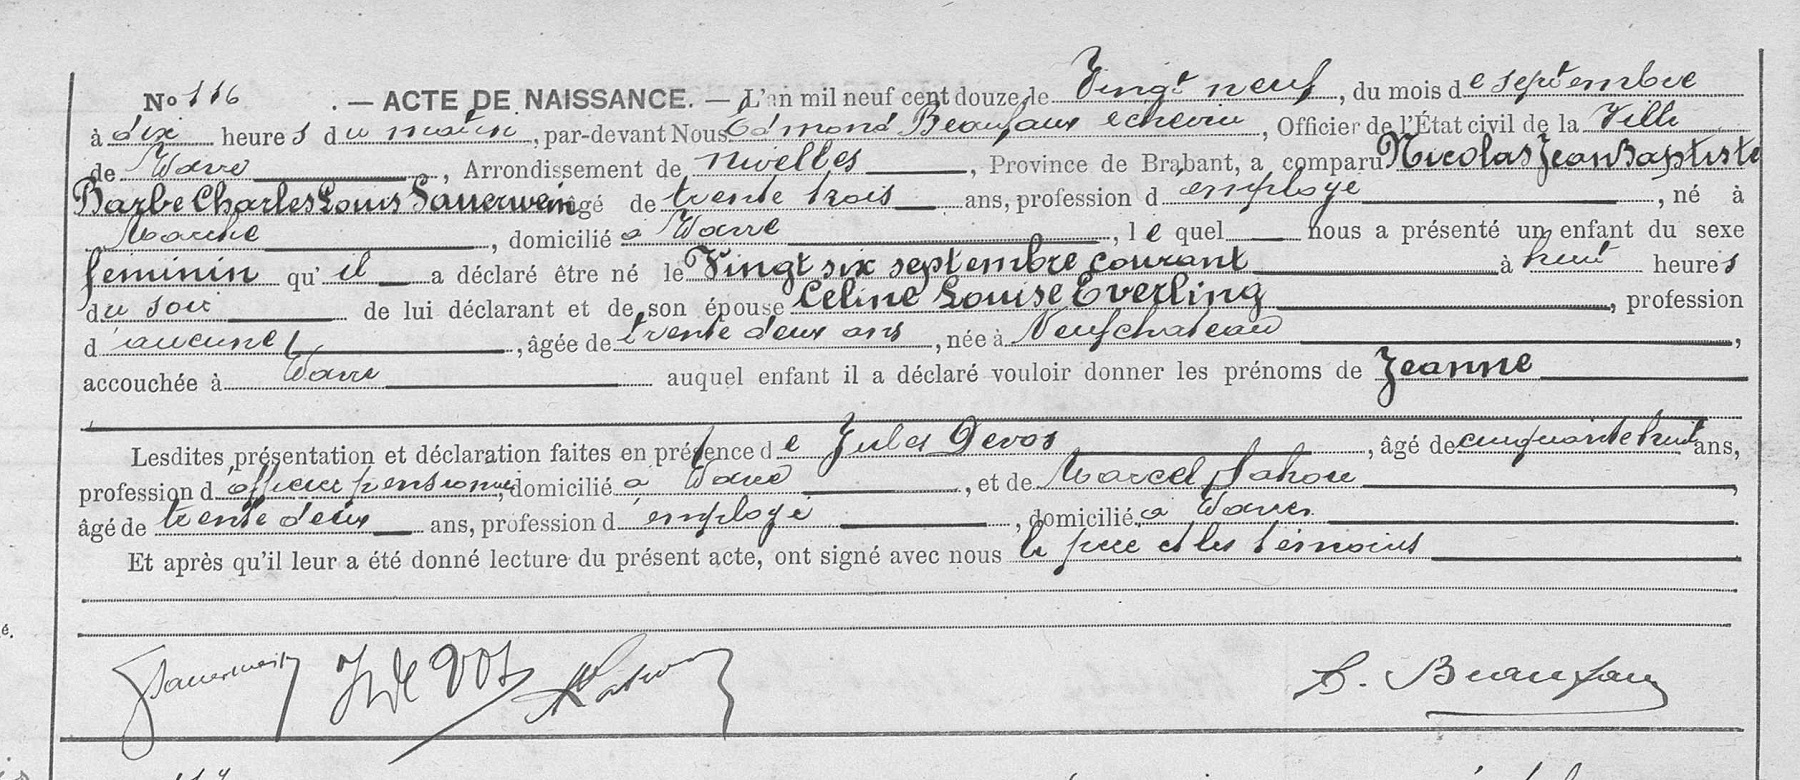 No 116 . — ACTE DE NAISSANCE. — L'an mil neuf cent douze, le Vingt neuf, du mois de septembre
à dix heures du matin, par-devant Nous Edmond Beaufaux echevin, Officier de l'État civil de la Ville
de Wavre, Arrondissement de Nivelles, Province de Brabant, a comparu Nicolas Jean Baptiste
Barbe Charles Louis Sauerwein âgé de trente trois ans, profession d'employé, né à
Marche, domicilié à Wavre, lequel nous a présenté un enfant du sexe
feminin qu'il a déclaré être né le Vingt six septembre courant à huit heures
du soir de lui déclarant et de son épouse Celine Louise Everling, profession
d'aucune, âgée de trente deux ans, née à Neufchateau,
accouchée à Wavre auquel enfant il a déclaré vouloir donner les prénoms de Jeanne
Lesdites présentation et déclaration faites en présence de Jules Devos, âgé de cinquante huit ans,
profession d'officier pensionné, domicilié à Wavre, et de Marcel,
âgé de trente deux ans, profession d'employé, domicilié à Wavre.
Et après qu'il leur a été donné lecture du présent acte, ont signé avec nous le père et les témoins
é.
Sauerwein J De Vos E. Beaufaux